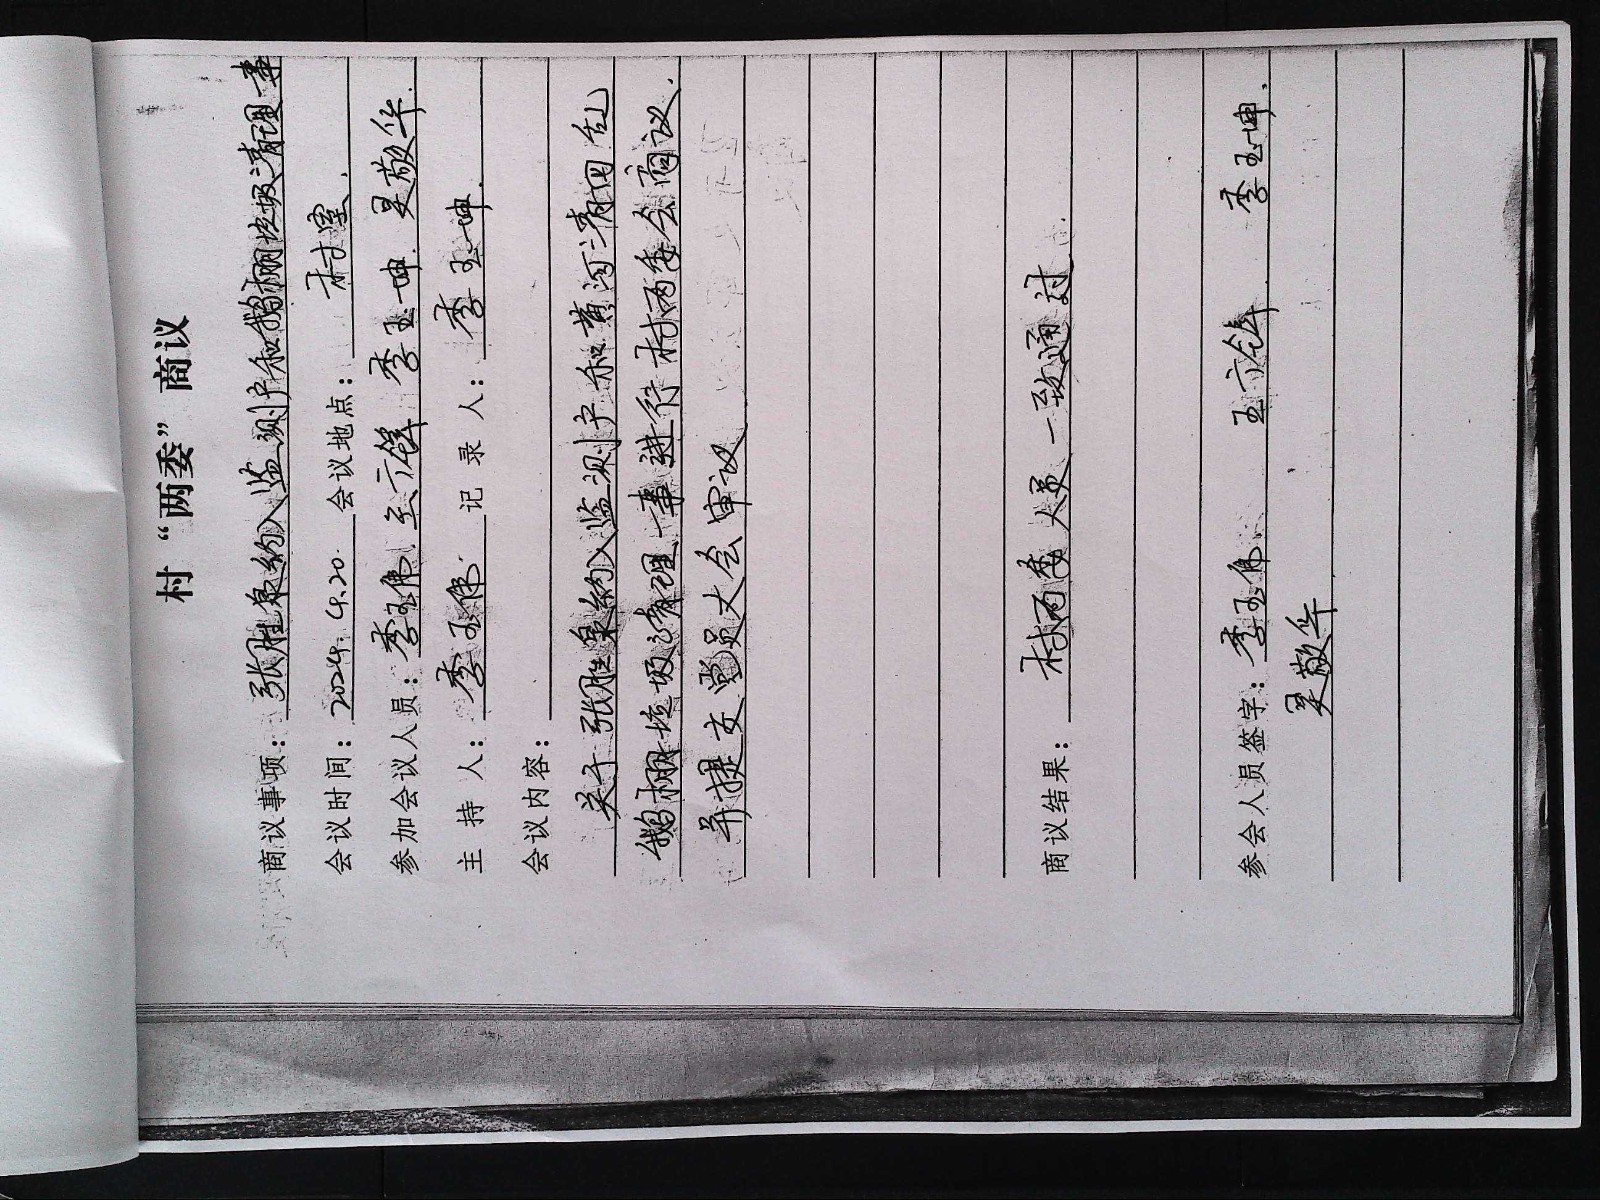 村“两委”商议
商议事项：张胜泉纳入监测户和鹅棚垃圾清理一事
会议时间：2024.4.20. 会议地点：村室.
参加会议人员：李玉伟. 李玉坤. 吴敬华.
主持人：李玉伟. 记录人：李玉坤.
会议内容：
关于张胜泉纳入监测户和黄河清四乱
鹅棚垃圾清理一事进行村两委会商议.
并提交党员大会审议
商议结果：村两委人员一致通过.
参会人员签字：李玉伟. 李玉坤.
吴敬华